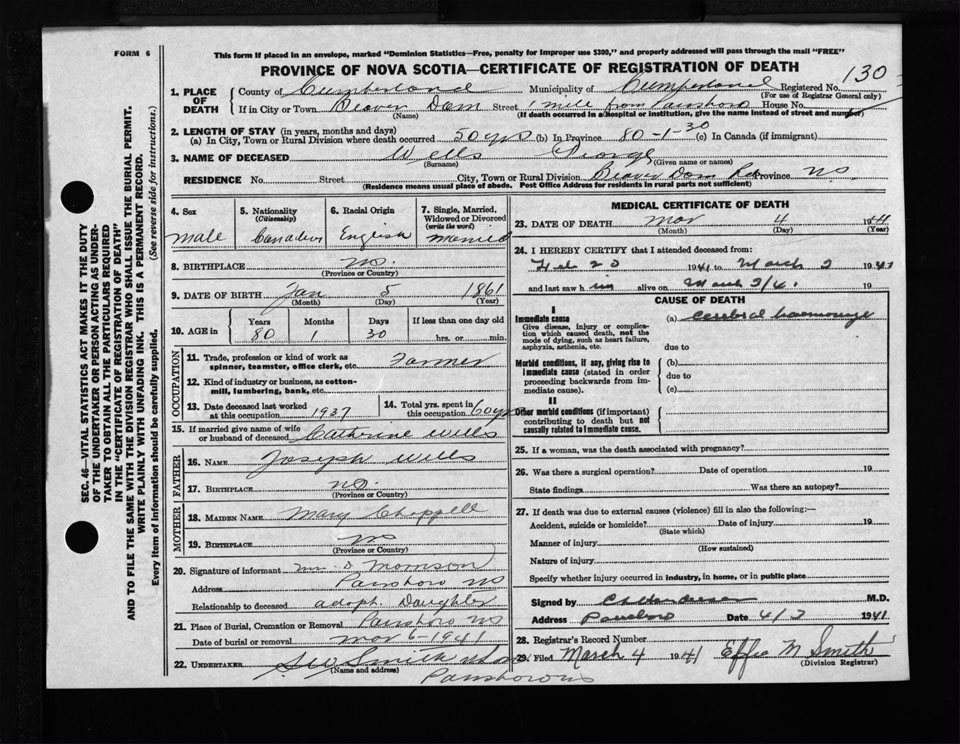 FORM 6
This form if placed in an envelope, marked "Dominion Statistics—Free, penalty for improper use $300," and properly addressed will pass through the mail "FREE"
PROVINCE OF NOVA SCOTIA—CERTIFICATE OF REGISTRATION OF DEATH
130
1. PLACE OF DEATH
County of Cumberland Municipality of Cumberland Registered No.
(For use of Registrar General only)
If in City or Town Beaver Dam Street 1 mile from Parrsboro House No.
(Name) (If death occurred in a hospital or institution, give the name instead of street and number)
2. LENGTH OF STAY (in years, months and days)
(a) In City, Town or Rural Division where death occurred 50 yrs (b) In Province 80-1-30 (c) In Canada (if immigrant)
3. NAME OF DECEASED Wells George
(Surname) (Given name or names)
RESIDENCE No. Street City, Town or Rural Division Beaver Dam Rd Province N.S.
(Residence means usual place of abode. Post Office Address for residents in rural parts not sufficient)
4. Sex Male
5. Nationality (Citizenship) Canadian
6. Racial Origin English
7. Single, Married, Widowed or Divorced (write the word) Married
8. BIRTHPLACE N.S.
(Province or Country)
9. DATE OF BIRTH Jan 5 1861
(Month) (Day) (Year)
10. AGE in Years 80 Months 1 Days 30 If less than one day old hrs. or min.
OCCUPATION
11. Trade, profession or kind of work as spinner, teamster, office clerk, etc. Farmer
12. Kind of industry or business, as cotton-mill, lumbering, bank, etc.
13. Date deceased last worked at this occupation 1937
14. Total yrs. spent in this occupation 60 yrs
15. If married give name of wife or husband of deceased Catherine Wells
FATHER
16. Name Joseph Wells
17. Birthplace N.S.
(Province or Country)
MOTHER
18. Maiden Name Mary Chappell
19. Birthplace N.S.
(Province or Country)
20. Signature of informant Mrs D Morrison
Address Parrsboro N.S
Relationship to deceased adopt. Daughter
21. Place of Burial, Cremation or Removal Parrsboro N.S
Date of burial or removal Mar 6-1941
22. UNDERTAKER Smith
(Name and address)
Parrsboro N.S
MEDICAL CERTIFICATE OF DEATH
23. DATE OF DEATH Mar 4 1941
(Month) (Day) (Year)
24. I HEREBY CERTIFY that I attended deceased from:
Feb 23 1941 to March 2 1941
and last saw him alive on March 2/41. 19
CAUSE OF DEATH
I
Immediate cause (a) cerebral haemorrage
Give disease, injury or complication which caused death, not the mode of dying, such as heart failure, asphyxia, asthenia, etc.
due to
Morbid conditions, if any, giving rise to immediate cause (stated in order proceeding backwards from immediate cause).
(b)
due to
(c)
II
Other morbid conditions (if important) contributing to death but not causally related to immediate cause.
25. If a woman, was the death associated with pregnancy?
26. Was there a surgical operation? Date of operation 19
State findings Was there an autopsy?
27. If death was due to external causes (violence) fill in also the following:—
Accident, suicide or homicide? Date of injury 19
(State which)
Manner of injury
(How sustained)
Nature of injury
Specify whether injury occurred in industry, in home, or in public place
Signed by M.D.
Address Parrsboro Date 4/3 1941
28. Registrar's Record Number
29. Filed March 4 1941 Effie M Smith
(Division Registrar)
SEC. 46—VITAL STATISTICS ACT MAKES IT THE DUTY
OF THE UNDERTAKER OR PERSON ACTING AS UNDER-
TAKER TO OBTAIN ALL THE PARTICULARS REQUIRED
IN THE "CERTIFICATE OF REGISTRATION OF DEATH"
AND TO FILE THE SAME WITH THE DIVISION REGISTRAR WHO SHALL ISSUE THE BURIAL PERMIT.
WRITE PLAINLY WITH UNFADING INK. THIS IS A PERMANENT RECORD.
Every item of information should be carefully supplied. (See reverse side for instructions.)